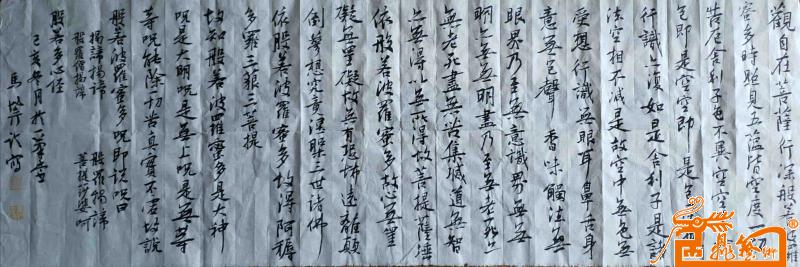 觀自在菩薩行深般若波羅
蜜多時照見五蘊皆空度一切
苦厄舍利子色不異空空
色即是空空即是
行識亦復如是舍利子是諸
法空相不減是故空中無色無
受想行識無眼耳鼻舌身
意無色聲香味觸法無
眼界乃至無意識界無無
明亦無無明盡乃至無老死亦
無老死盡無苦集滅道無智
亦無得以無所得故菩提薩埵
依般若波羅蜜多故心無罣
礙無罣礙故無有恐怖遠離顛
倒夢想究竟涅槃三世諸佛
依般若波羅蜜多故得阿耨
多羅三藐三菩提
故知般若波羅蜜多是大神
呪是大明呪是無上呪是無等
等呪能除一切苦真實不虛故說
般若波羅蜜多呪即說呪曰
揭諦揭諦 般羅揭諦
般羅僧揭諦 菩提薩婆訶
般若多心經
己亥冬月於
馬